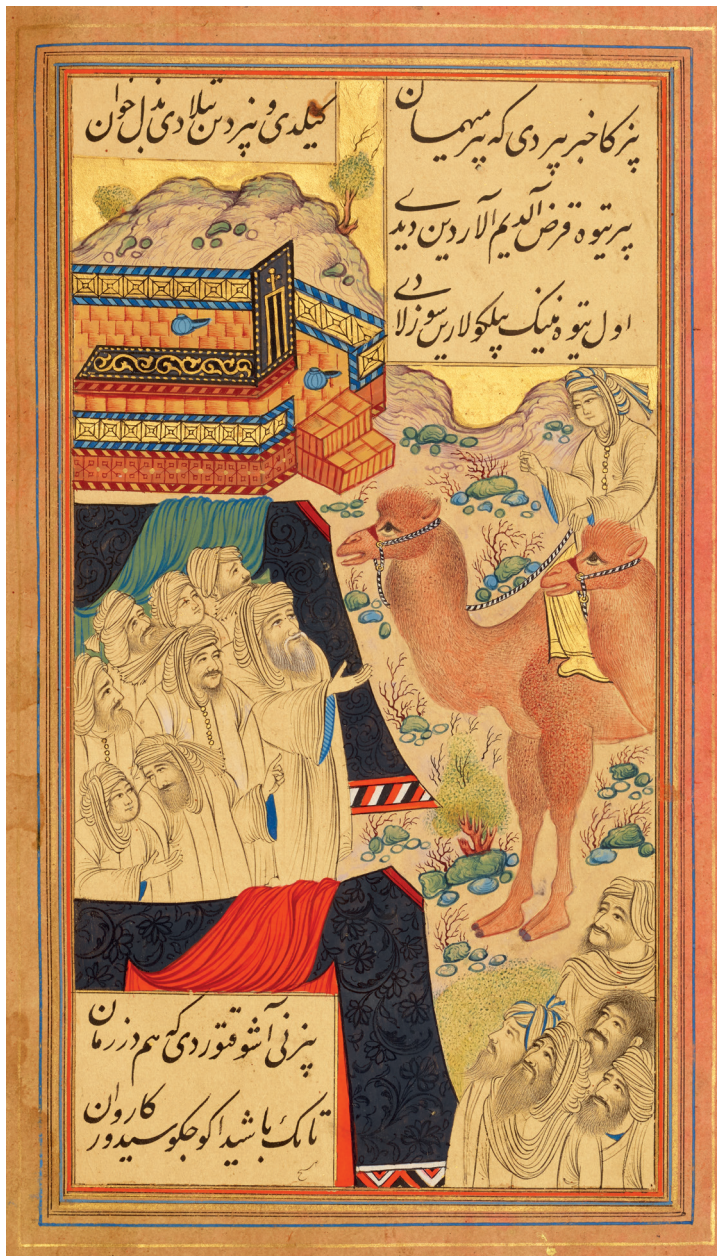 بزکا خبر بیردی که بیر میهمان
کیلدی و بیزدین تیلادی بذل خوان
بیر تیوه قرض آلدیم آلاردین دیدی
اول تیوه نینک بیلکولارین سوزلادی
بیزنی آشوقتوردی که هم در زمان
تانک باشیدا کوجکوسیدور کاروان